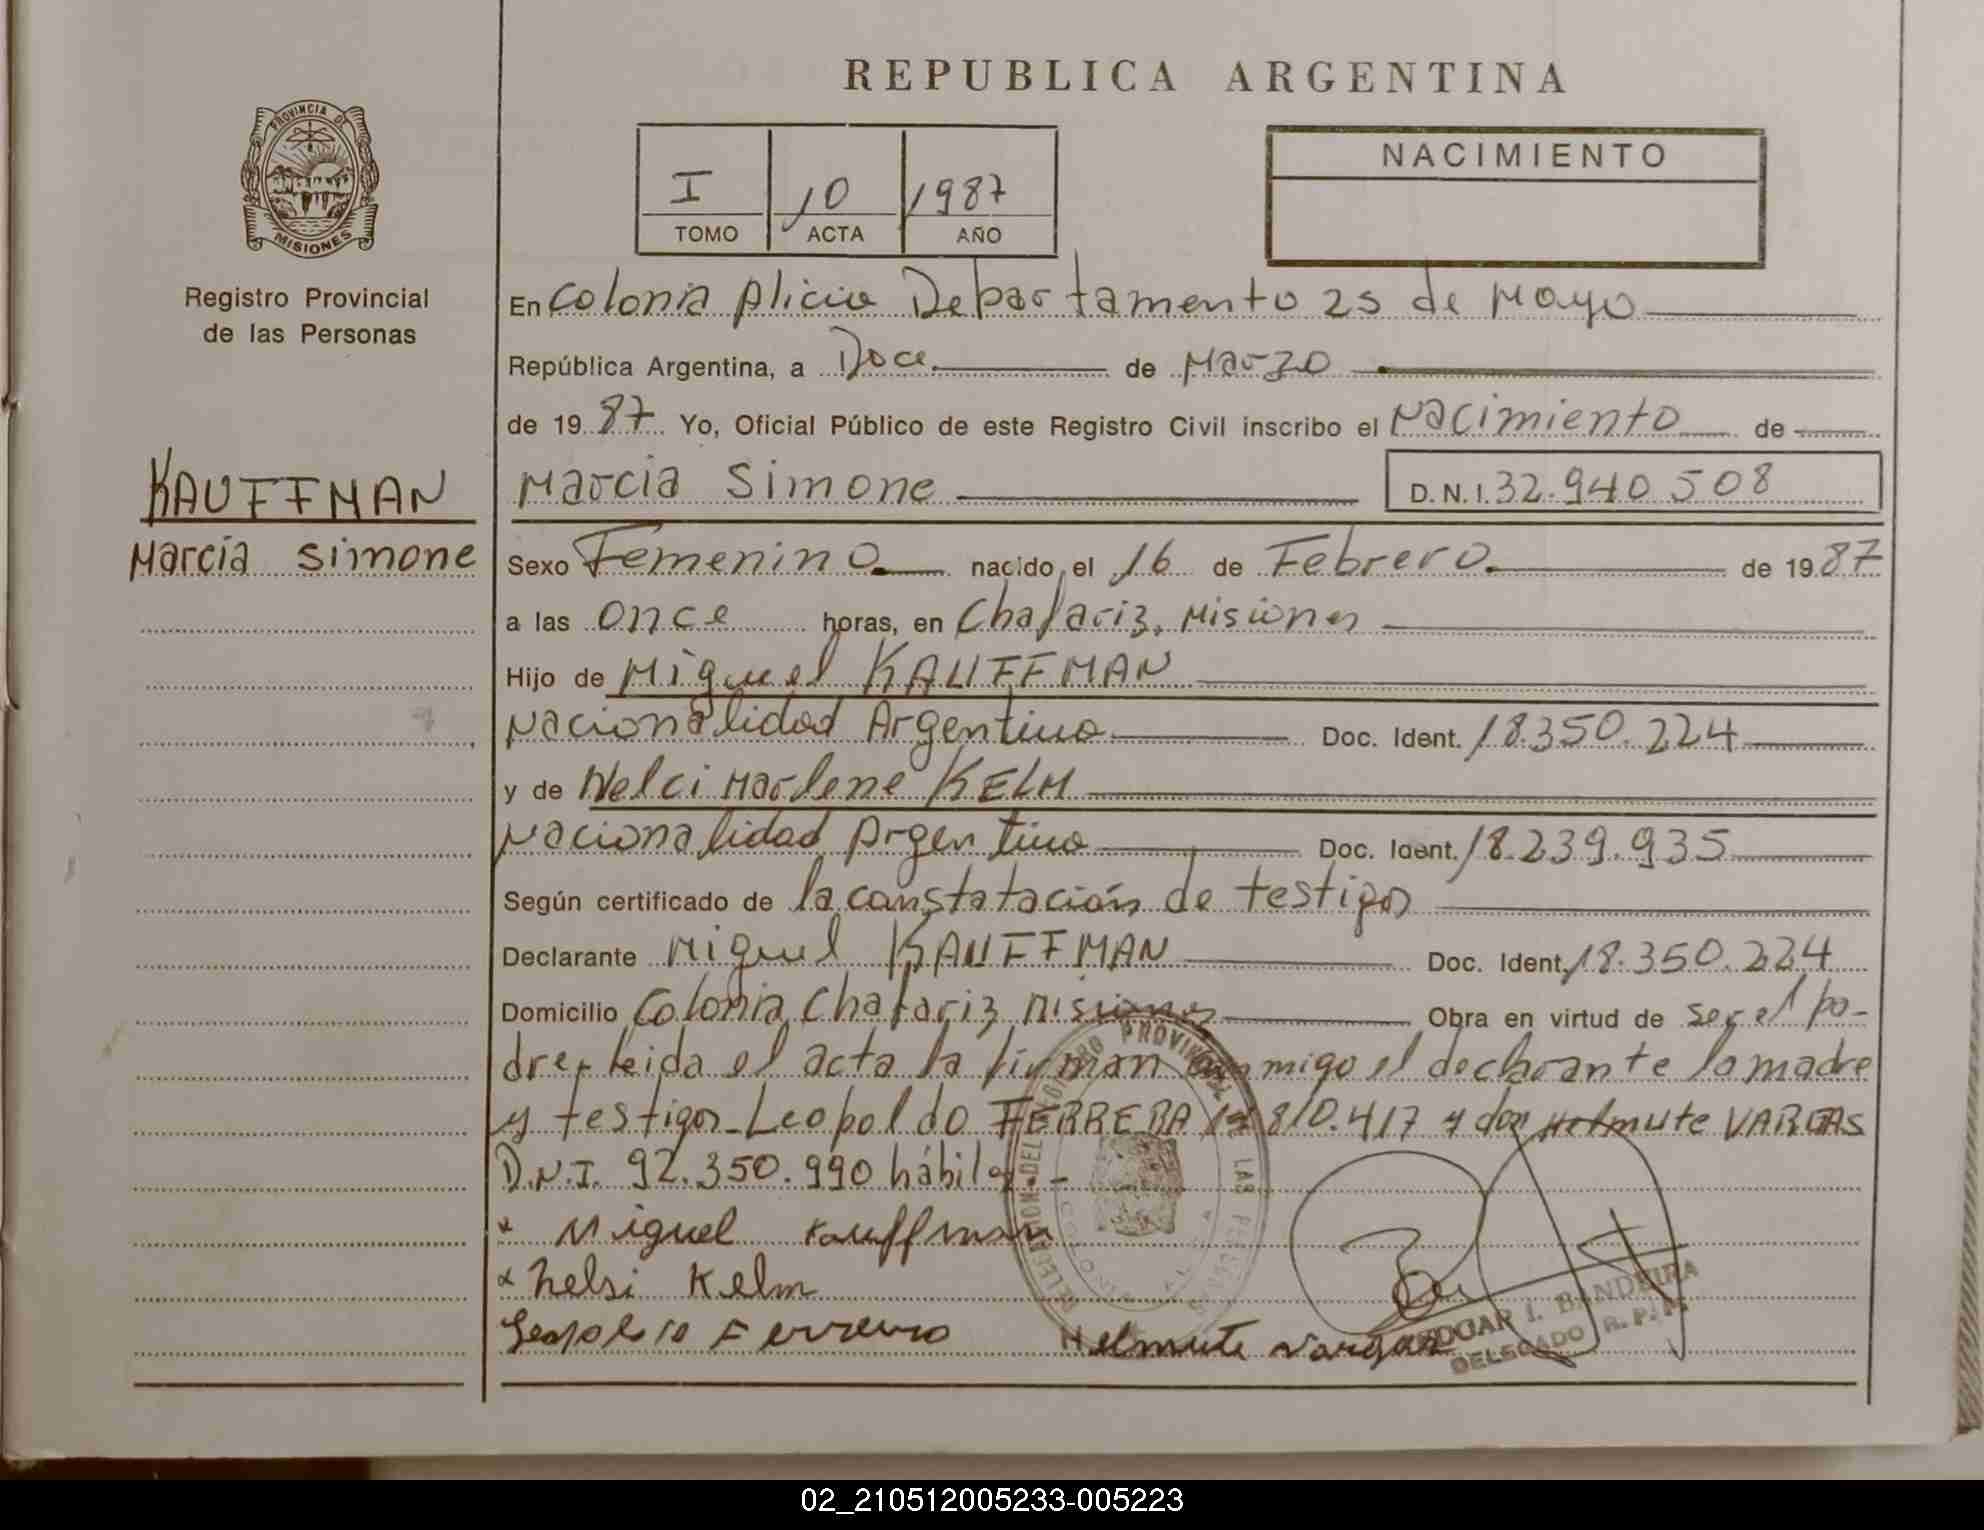 REPUBLICA ARGENTINA
PROVINCIA DE
MISIONES
Registro Provincial
de las Personas
I 10 1987
TOMO ACTA AÑO
NACIMIENTO
En Colonia Alicia Departamento 25 de Mayo
República Argentina, a Doce de Marzo
de 1987 Yo, Oficial Público de este Registro Civil inscribo el Nacimiento de
KAUFFMAN
Marcia Simone
Marcia Simone D.N.I. 32.940.508
Sexo Femenino. nacido el 16 de Febrero. de 1987
a las once horas, en Chafariz, Misiones
Hijo de Miguel KAUFFMAN
Nacionalidad Argentina Doc. Ident. 18.350.224
y de Nelci Marlene KELM
Nacionalidad Argentina Doc. Ident. 18.239.935
Según certificado de la constatación de testigos
Declarante Miguel KAUFFMAN Doc. Ident. 18.350.224
Domicilio Colonia Chafariz Misiones Obra en virtud de ser el pa-
dre, leida el acta la firman conmigo el declarante la madre
y testigos Leopoldo FERRERA 810.417 y don Helmute VARGAS
D.N.I. 92.350.990 hábiles.-
x Miguel Kauffman
x Nelsi Kelm
Leopoldo Ferreira Helmute Vargas
DELEGACION DEL REGISTRO PROVINCIAL DE LAS PERSONAS
COLONIA ALICIA
EDGAR I. BANDEIRA
DELEGADO R. P. P.
02_210512005233-005223